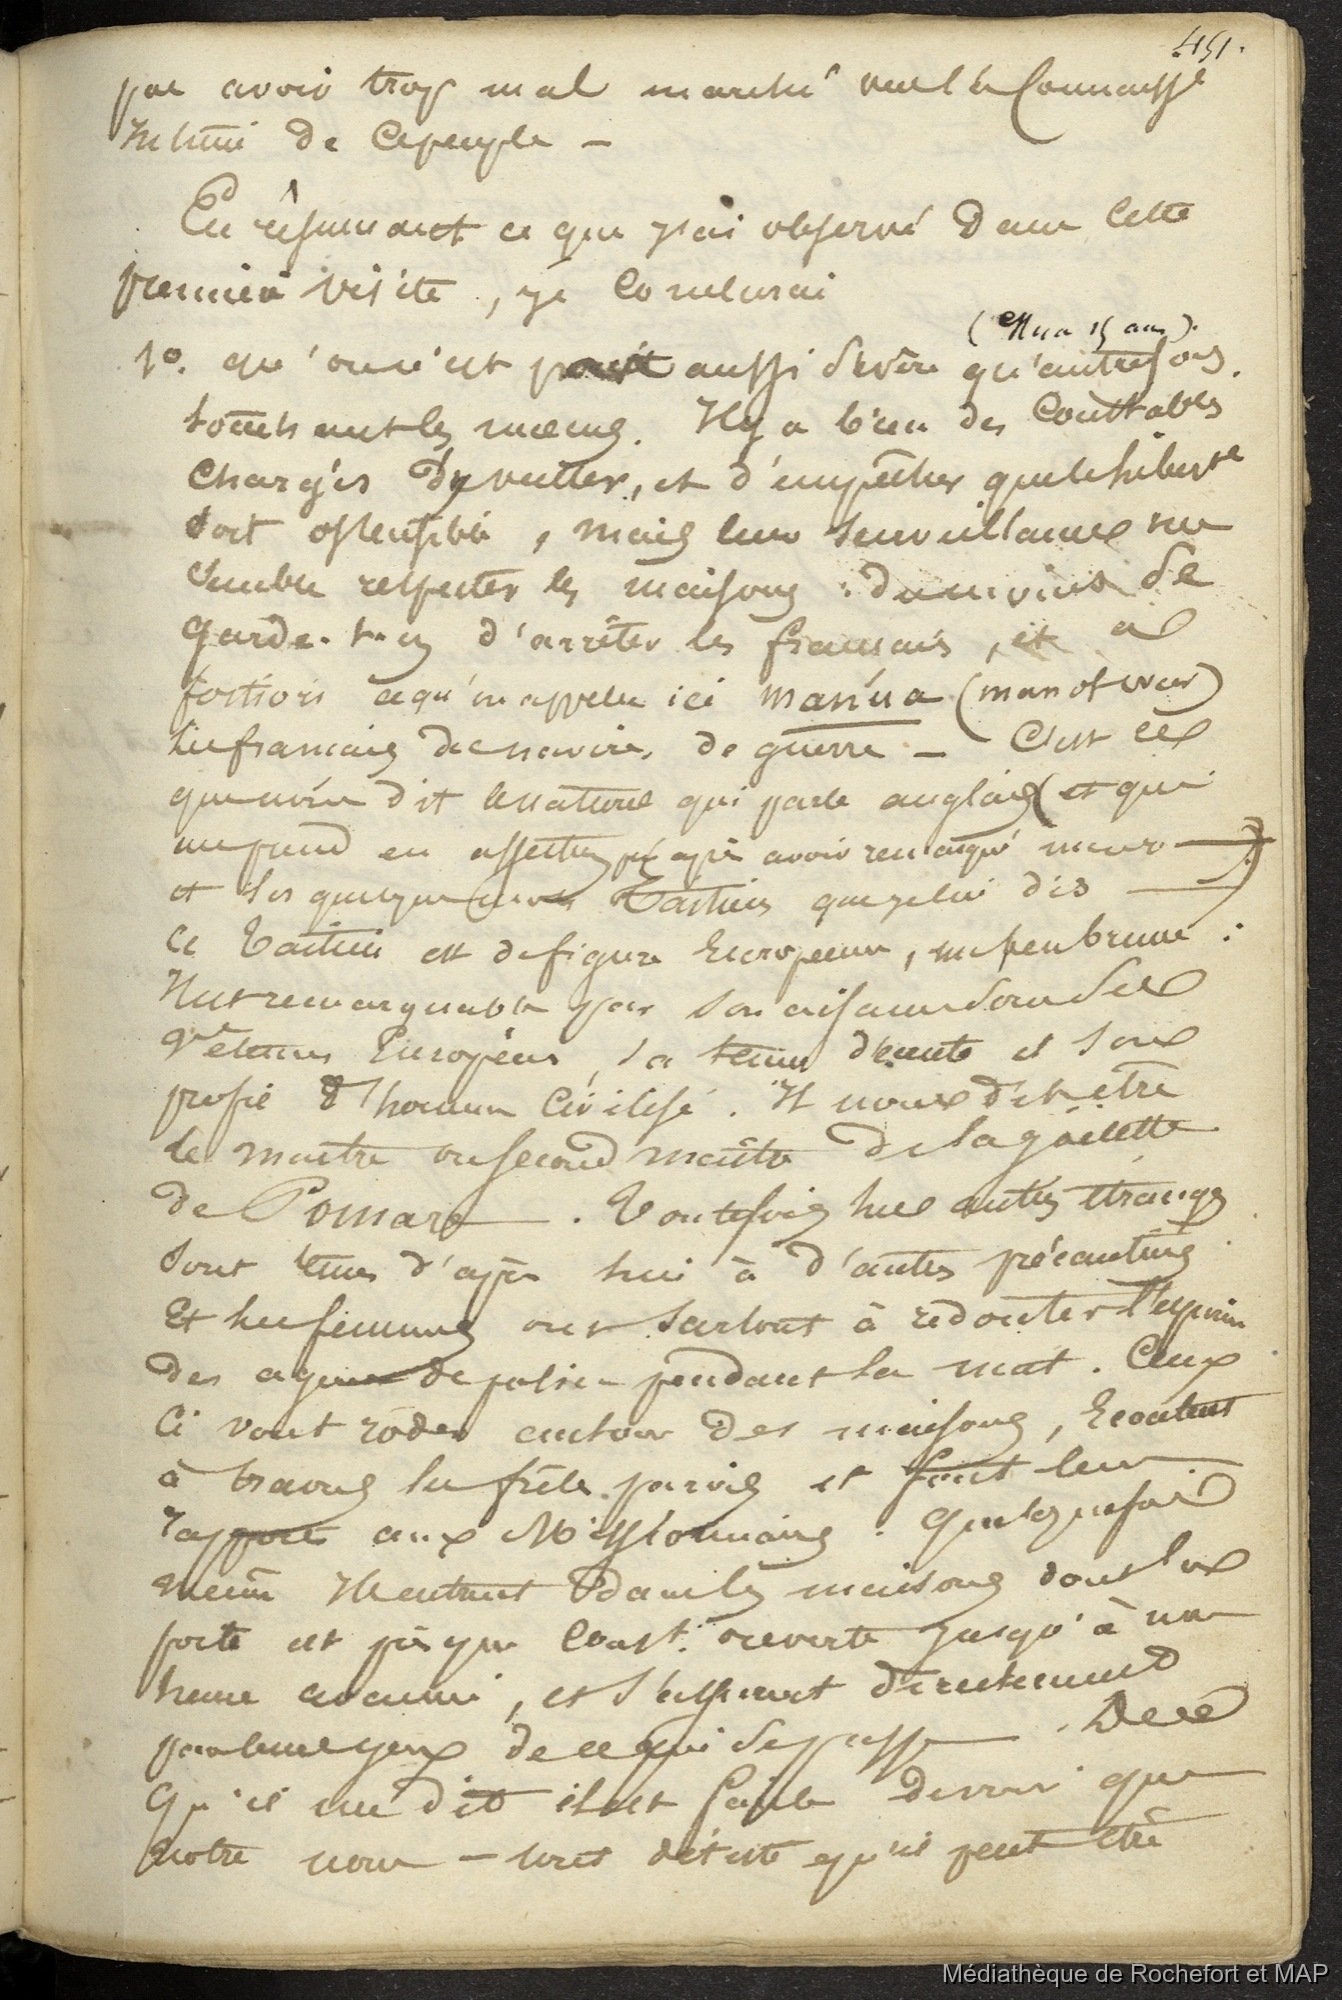 451.
pas avoir trop mal marché vers la Connaiss.e
intime de ce peuple —
En résumant ce que j'ai observé dans cette
première visite, je conclurai
(Il y a 15 ans).
1o. qu'on n'est pas aussi sévère qu'autrefois
touchant les moeurs. Il y a bien desConstables
chargés d'y veiller, et d'empêcher que le libert.e
soit ostensible, mais leur surveillance me
semble respecter les maisons : du moins se
garde-t-on d'arrêter les français, et à
fortiori ce qu'on appelle ici manúa (man of war)
les français des navires de guerre — C'est ce
que m'en dit le naturel qui parle anglais (et qui
me prend en affection après avoir remarqué
et les quelques mots taïtiens que je lui dis —)
Ce Taïtien est de figure Européenne, un peu brune :
Il est remarquable par son aisance sous ses
vêtemens Européens, sa tenue décente et son
profil d'homme civilisé. Il nous dit être
le maître ou second maître de la goëlette
de Pomaré —. Toutefois les autres étrangers
sont tenus d'après lui à d'autres précautions
Et les femmes ont surtout à redouter l'espion
des agens de police pendant la nuit. Ceux
ci vont rôder autour des maisons, Ecoutent
à travers les frêles parois et font leur
rapport aux Missionnaires. Quelquefois
même ils entrent dans les maisons dont la
porte est presque const. ouverte jusqu'à une
heure avancée, et s'assurent directement
par leurs yeux de ce qui se passe —. De ce
qu'il me dit il est facile de voir que
notre nom — tout détesté qu'il peut être